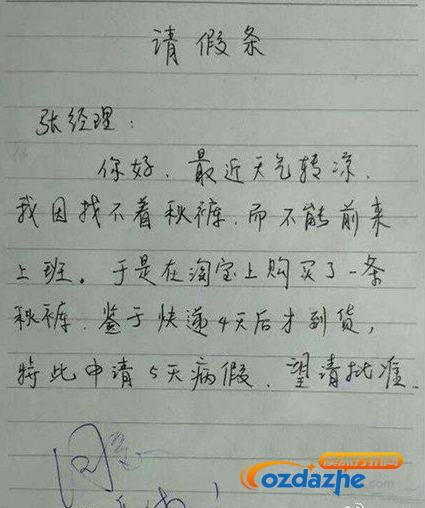 请假条
张经理：
你好，最近天气转凉，
我因找不着秋裤，而不能前来
上班。于是在淘宝上购买了一条
秋裤，鉴于快递4天后才到货，
特此申请5天病假，望请批准。
ozdazhe